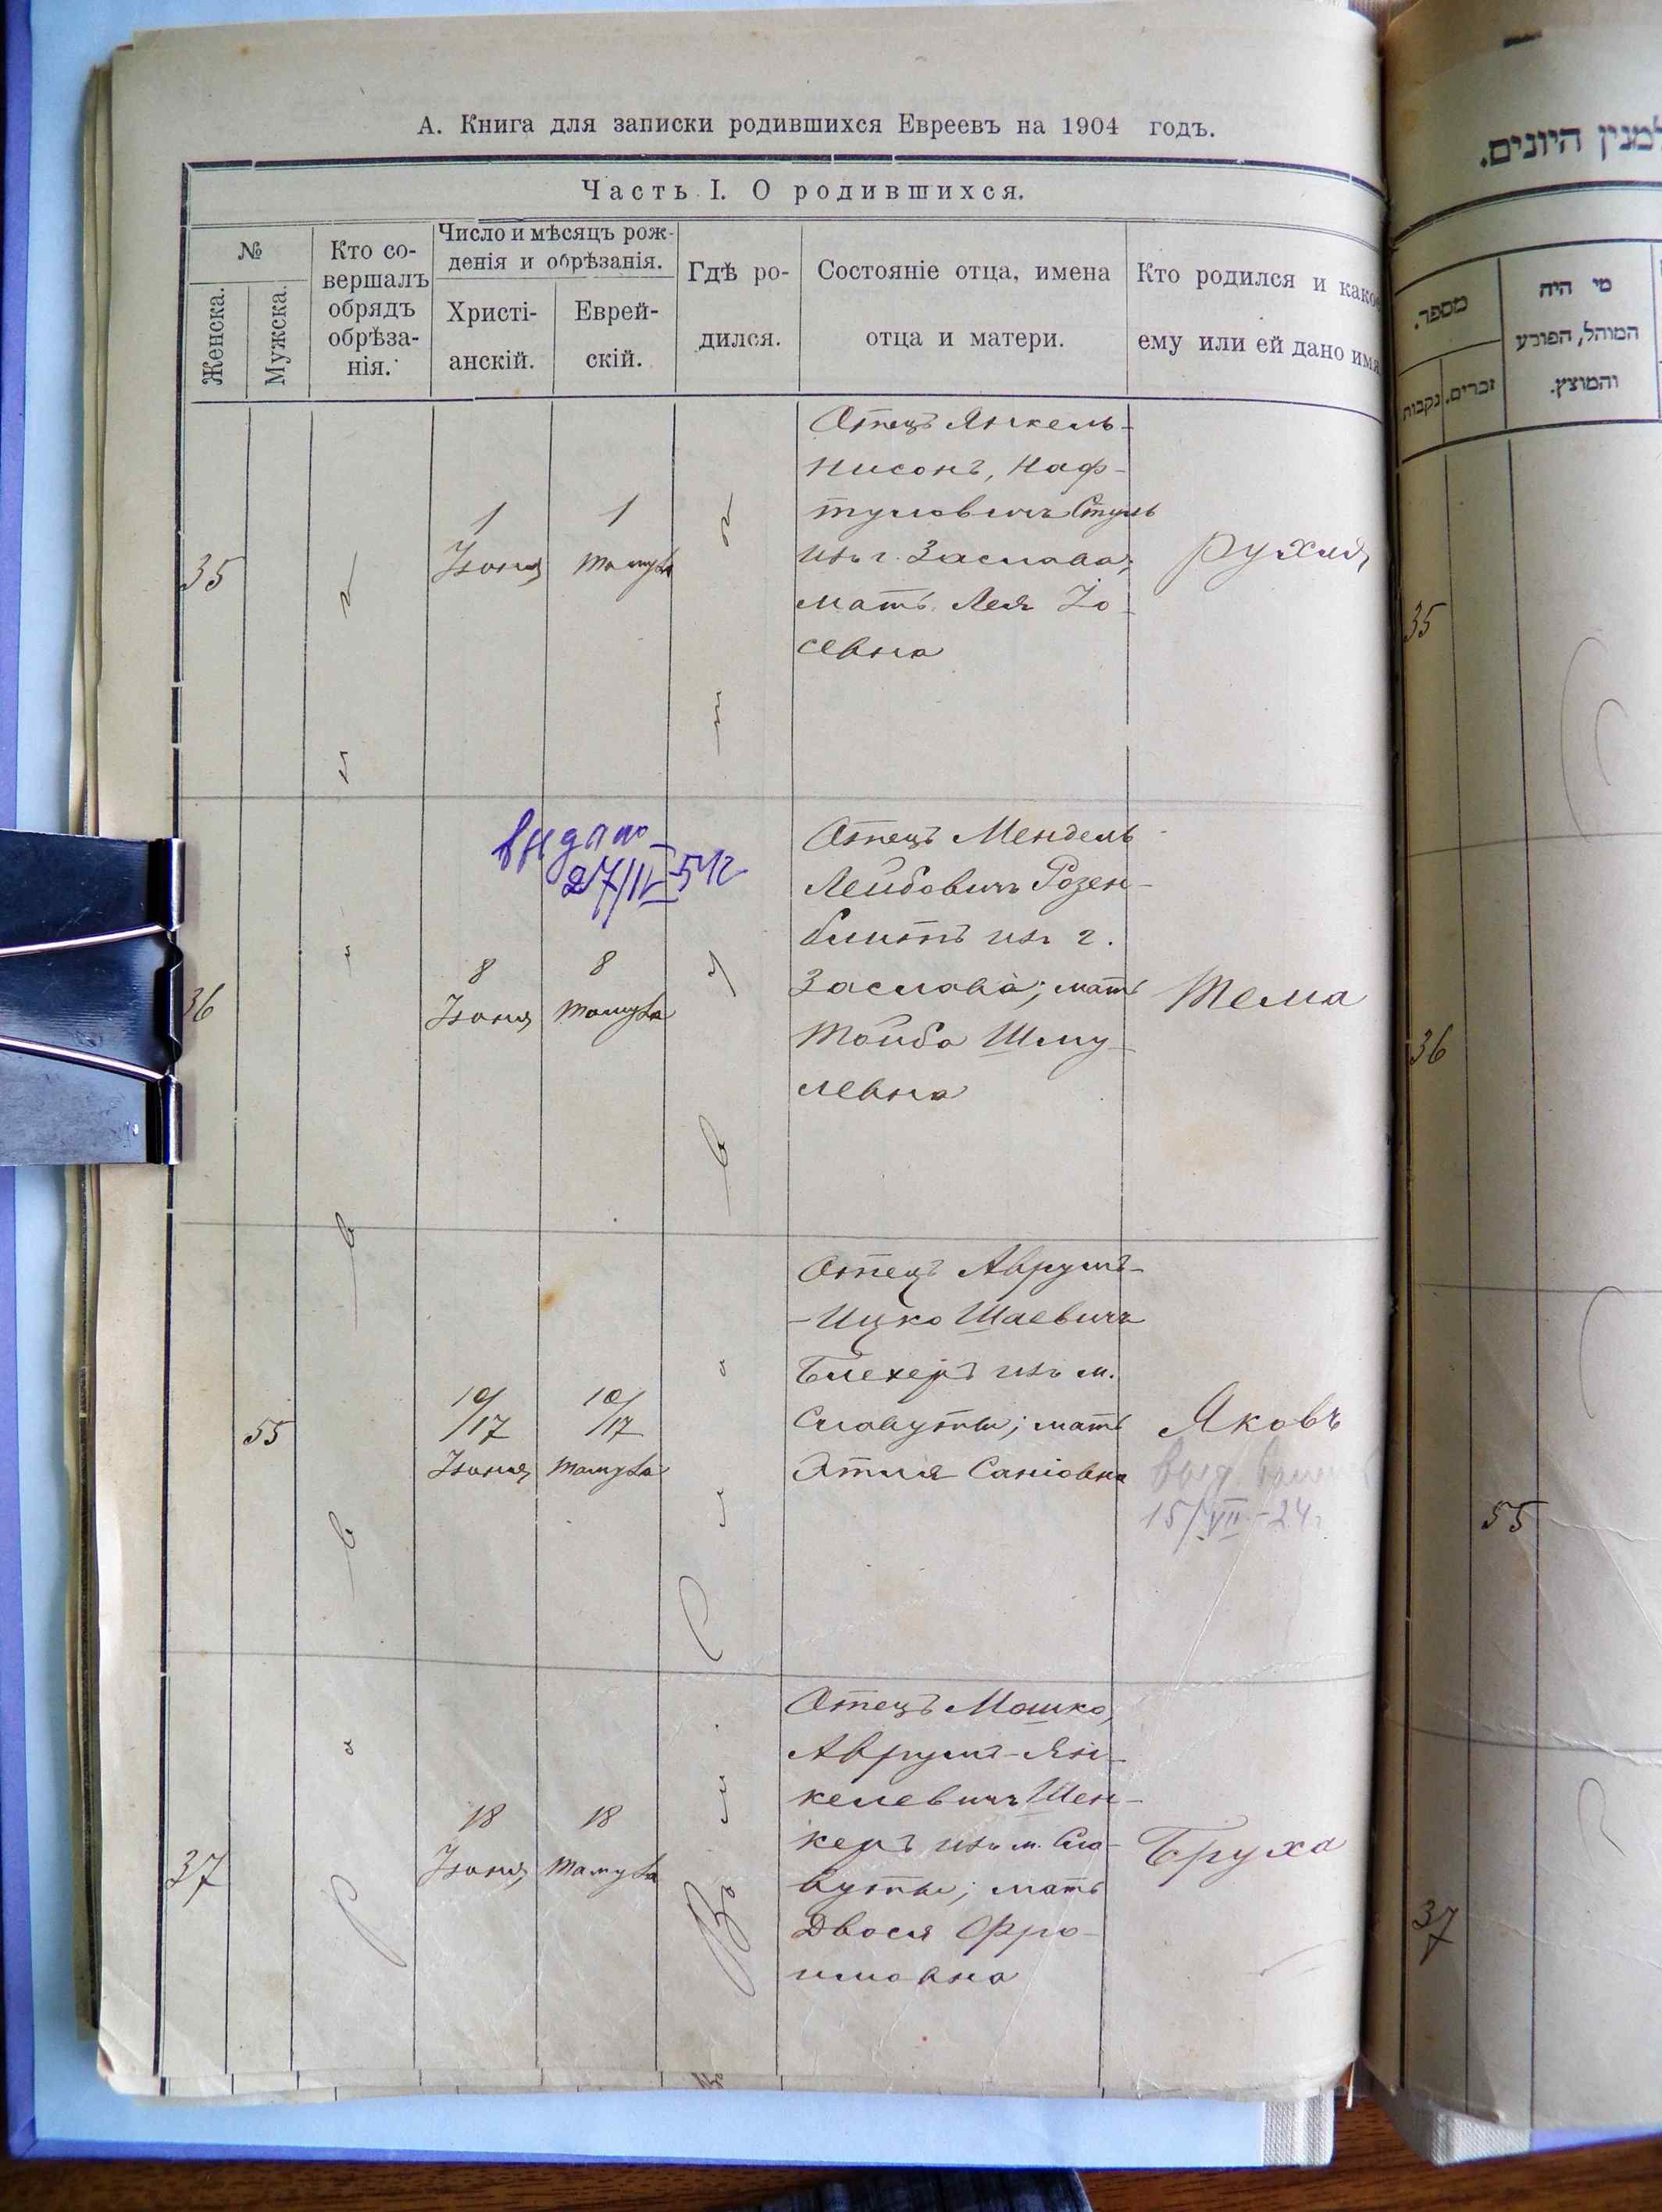 А. Книга для записки родившихся Евреевъ на 1904 годъ.
Часть I. О родившихся.
№
Женска.
Мужска.
Кто со-
вершалъ
обрядъ
обрѣза-
нія.
Число и мѣсяцъ рож-
денія и обрѣзанія.
Христі-
анскій.
Еврей-
скій.
Гдѣ ро-
дился.
Состояніе отца, имена
отца и матери.
Кто родился и како
ему или ей дано имя
35
1
Іюня
1
Тамуза
Отецъ Янкель-
Нисонъ, Наф-
туловичъ Стуль
изъ г. Заслава;
мать Лея Іо-
севна
Рухля
выдано
27/IV-51г
36
8
Іюня
8
Тамуза
Отецъ Мендель
Лейбовичъ Розен-
блитъ изъ г.
Заслава; мать
Тойба Шму-
левна
Тема
55
10/17
Іюня
10/17
Тамуза
Отецъ Аврумъ-
-Ицко Шаевичъ
Блехеръ изъ м.
Славуты; мать
Этля Саніовна
Яковъ
15/VII-24г
37
18
Іюня
18
Тамуза
Отецъ Мошко,
Аврумъ-Ян-
келевичъ Шен-
керъ изъ м. Сла-
вуты; мать
Двося Фро-
имовна
Бруха
למנין היונים.
מספר.
נקבות
זכרים.
מי היה
המוהל, הפורע
והמוצץ.
35
36
55
37